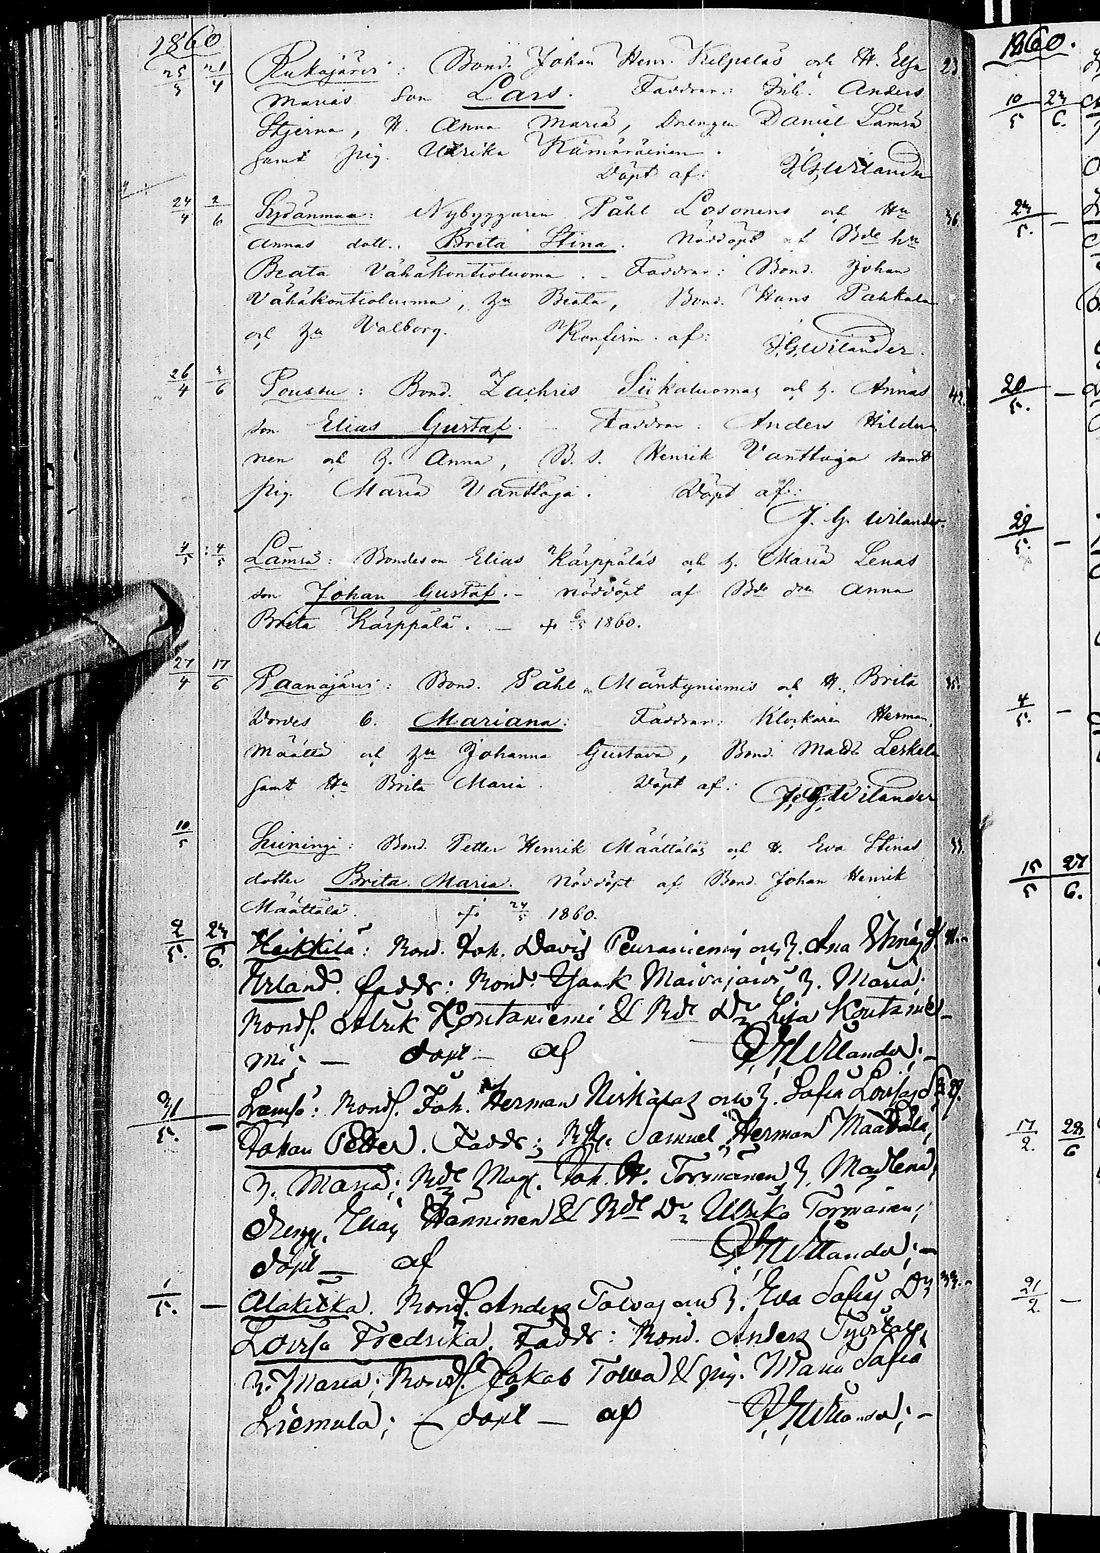 1860
25/3 21/4 Rukajärvi: Bond. Johan Henr. Kilpeläs och H. Elsa 23
Marias Son Lars. Faddrar: Inh. Anders
Stjerna, H. Anna Maria, Drengen Daniel Lämsä
samt pig. Ulrika Kämäräinen.
Döpt af: J. G. Wilander
24/4 2/6 Sydänmaa: Nybyggaren Påhl Losonens och Hu 36.
Annas dott. Brita Stina. Nöddöpt af Bde hu
Beata Vähäkontioluoma. – Faddrar: Bond. Johan
Vähäkontioluoma, hu Beata, Bond. Hans Pahkala
och hu Valborg. Konfirm. af: J. G. Wilander.
26/4 2/6 Poussu: Bond. Zachris Siikaluomas och h. Annas 42.
son Elias Gustaf. – Faddrar: Anders Hildu-
nen och h. Anna, B. S. Henrik Vanttaja samt
pig. Maria Vanttaja. Döpt af:
J. G. Wilander.
4/5 4/5 Lämsä: Bondeson Elias Kärppäläs och h. Maria Lenas
son Johan Gustaf. – nöddöpt af Bde dr Anna
Brita Kärppälä. – + 6/5 1860.
27/4 17/6 Paanajärvi: Bond. Påhl Mäntyniemis och H. Brita 35.
Dordes b. Mariana: Faddrar: Klockaren Herman
Määttä och hu Johanna Gustava, Bond. Mats Leskelä
samt Hu Brita Maria. Döpt af: J. G. Wilander
10/5 Suiningi: Bond. Petter Henrik Määttäläs och H. Eva Stinas 33.
dotter Brita Maria. Nöddöpt af Bond. Johan Henrik
Määttälä. + 24/5 1860.
2/5. 24/6. Heikkilä: Bond. Joh. David Peuraniemis och h. Ana
Erland. Fadds: Bond. Isaak Maivajärvi, h. Maria;
Bonds. Ulrik Kontaniemi & Bde Dr Lisa Kontanie-
mi; – döpt – af J. G. Wilander; –
31/5. – Lämsä: Bonds. Joh. Herman Nirkäläs och h. Sofia Lovisas S. 29.
Johan Petter. Fadds: Samuel Herman Määttälä,
h. Maria; Joh. H. Törmänen, h. Maglena,
dreng. Elias Hänninen & Bde Dr Ulrika Törmänen;
döpt – af J. G. Wilander; –
1/5. – Alakitka. Bond. Anders Tolvas och h. Eva Sofias Dr 33.
Lovisa Fredrika. Fadds: Bond. Anders
h. Maria; Bonds. Jakob Tolva & pig. Maria Sofia
Liemula; – döpt – af J. G. Wilander; –
1860.
10/5 24/6.
24/5. –
20/5. –
29/5. –
4/5. –
15/5 27/6.
17/2. 28/6
21/2. –